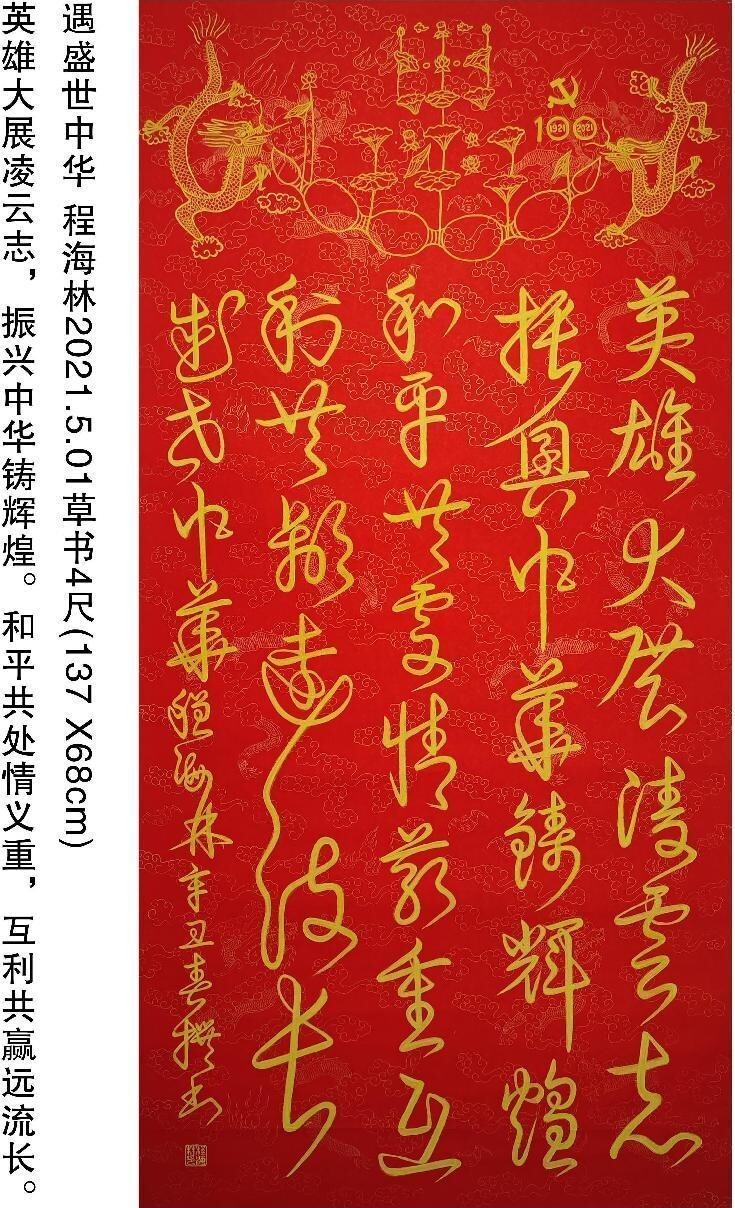 遇盛世中华 程海林2021.5.01草书4尺(137 X68cm)
英雄大展凌云志，振兴中华铸辉煌。和平共处情义重，互利共赢远流长。
100
1921 2021
英雄大展凌雲志
振興中華鑄輝煌
和平共處情義重互
利共贏遠流長
盛世中華 程海林辛丑春撰书